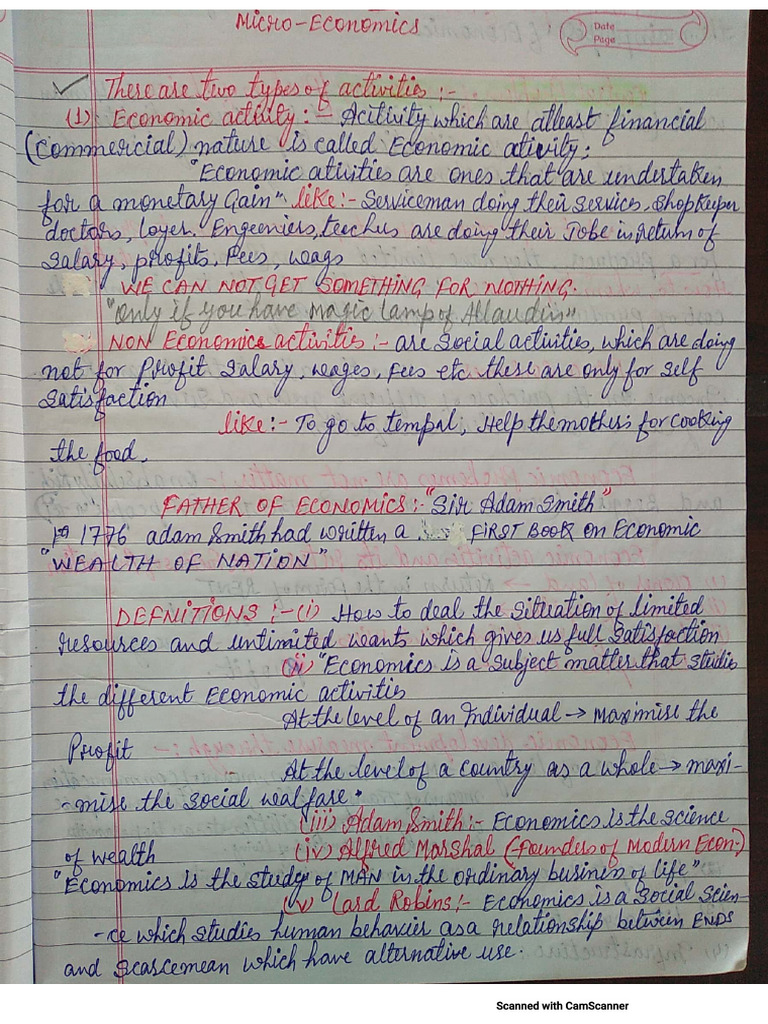 Micro-Economics
Date
Page
There are two types of activities :-
(1) Economic activity :- Acitivity which are atleast financial
(commercial) nature is called Economic ativity;
"Economic ativities are ones that are undertaken
for a monetary Gain" like:- Serviceman doing their services, Shopkeeper
doctors, loyer. Engeeniers, teachers are doing their Jobe in return of
Salary, profits, Fees, wags
WE CAN NOT GET SOMETHING FOR NOTHING.
"Only if you have magic lamp of Allaudin"
NON Economics activities :- are Social activities, which are doing
not for Profit Salary, wages, Fees etc these are only for Self
Satisfaction
like:- To go to tempal, Help the mothers for cooking
the food.
FATHER OF ECONOMICS :- "Sir Adam Smith"
1776 adam Smith had written a FIRST BOOK on Economic
"WEALTH OF NATION"
DEFNITIONS :- (i) How to deal the situation of limited
resources and untimited wants which gives us full Satisfaction
(ii) "Economics is a subject matter that studies
the different Economic activities
At the level of an Individual → Maximise the
Profit
At the level of a country as a whole → maxi-
-mise the social walfare.
(iii) Adam Smith:- Economics is the science
of wealth (iv) Alfred Marshal (founders of Modern Econ.)
"Economics is the study of MAN in the ordinary business of life"
(v) Lard Robins:- Economics is a Social Scien-
-ce which studies human behavior as a relationship between ENDS
and scascemean which have alternative use.
Scanned with CamScanner